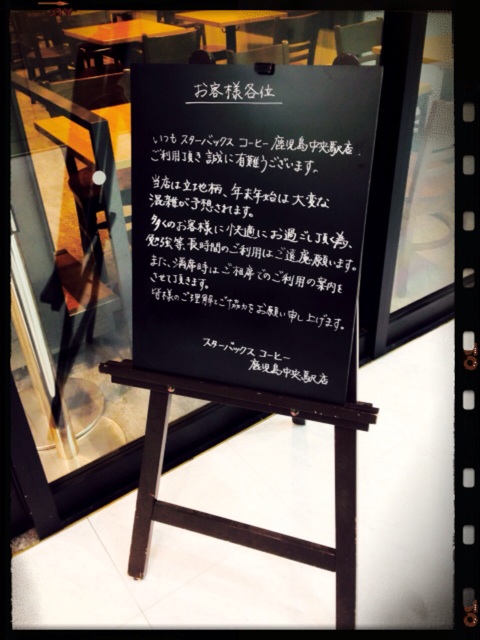 お客様各位
いつも スターバックス コーヒー 鹿児島中央駅店、
ご利用頂き 誠に有難うございます。
当店は立地柄、年末年始は大変な
混雑が予想されます。
多くのお客様に快適にお過ごし頂く為、
勉強等長時間のご利用はご遠慮願います。
また、満席時はご相席でのご利用の案内を
させて頂きます。
皆様のご理解とご協力をお願い申し上げます。
スターバックス コーヒー
鹿児島中央駅店